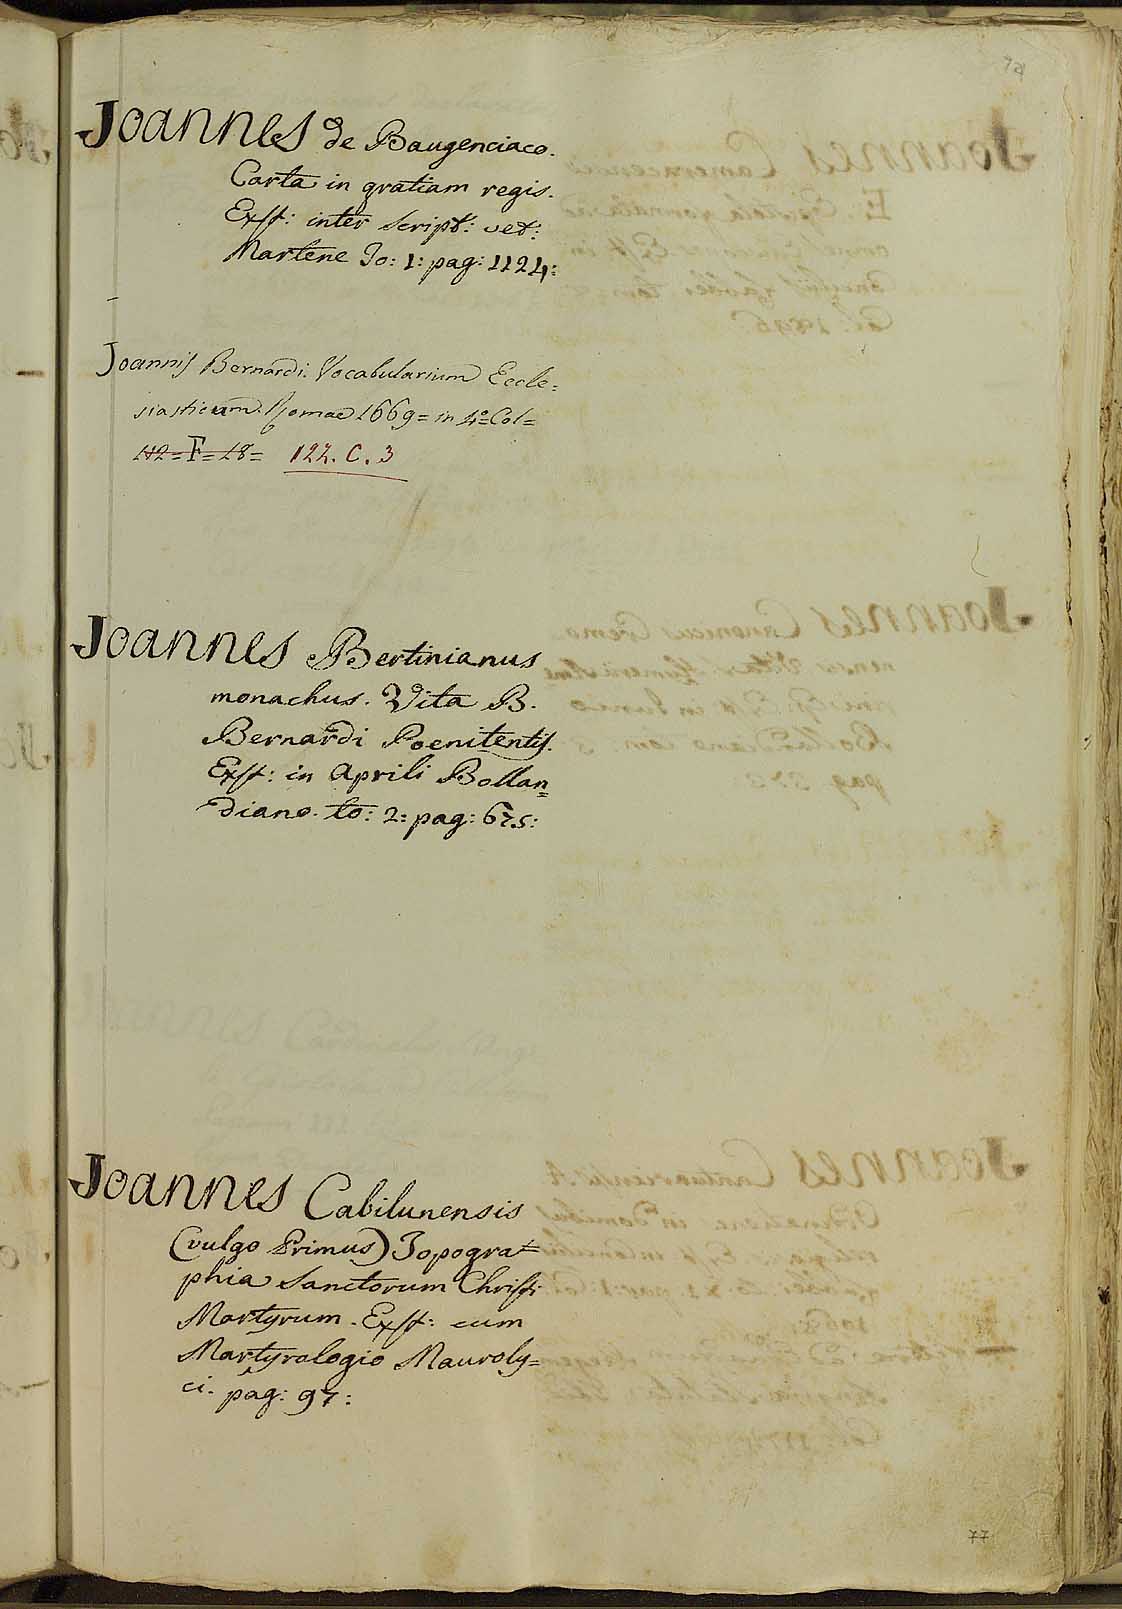 Joannes de Baugenciaco.
Carta in gratiam regis.
Exst: inter script: vet:
Martene To: 1: pag: 1124:
Joannis Bernardi. Vocabularium Eccle=
siasticum. Romae 1669= in 4º= Col=
112= F= 18= 122. C. 3
Joannes Bertinianus
monachus. Vita B.
Bernardi Poenitentis.
Exst: in Aprili Bollan=
diano. to: 2: pag: 675:
Joannes Cabilunensis
(vulgo Primus) Topogra=
phia Sanctorum Christi
Martyrum. Exst: cum
Martyrologio Mauroly=
ci. pag: 97:
77